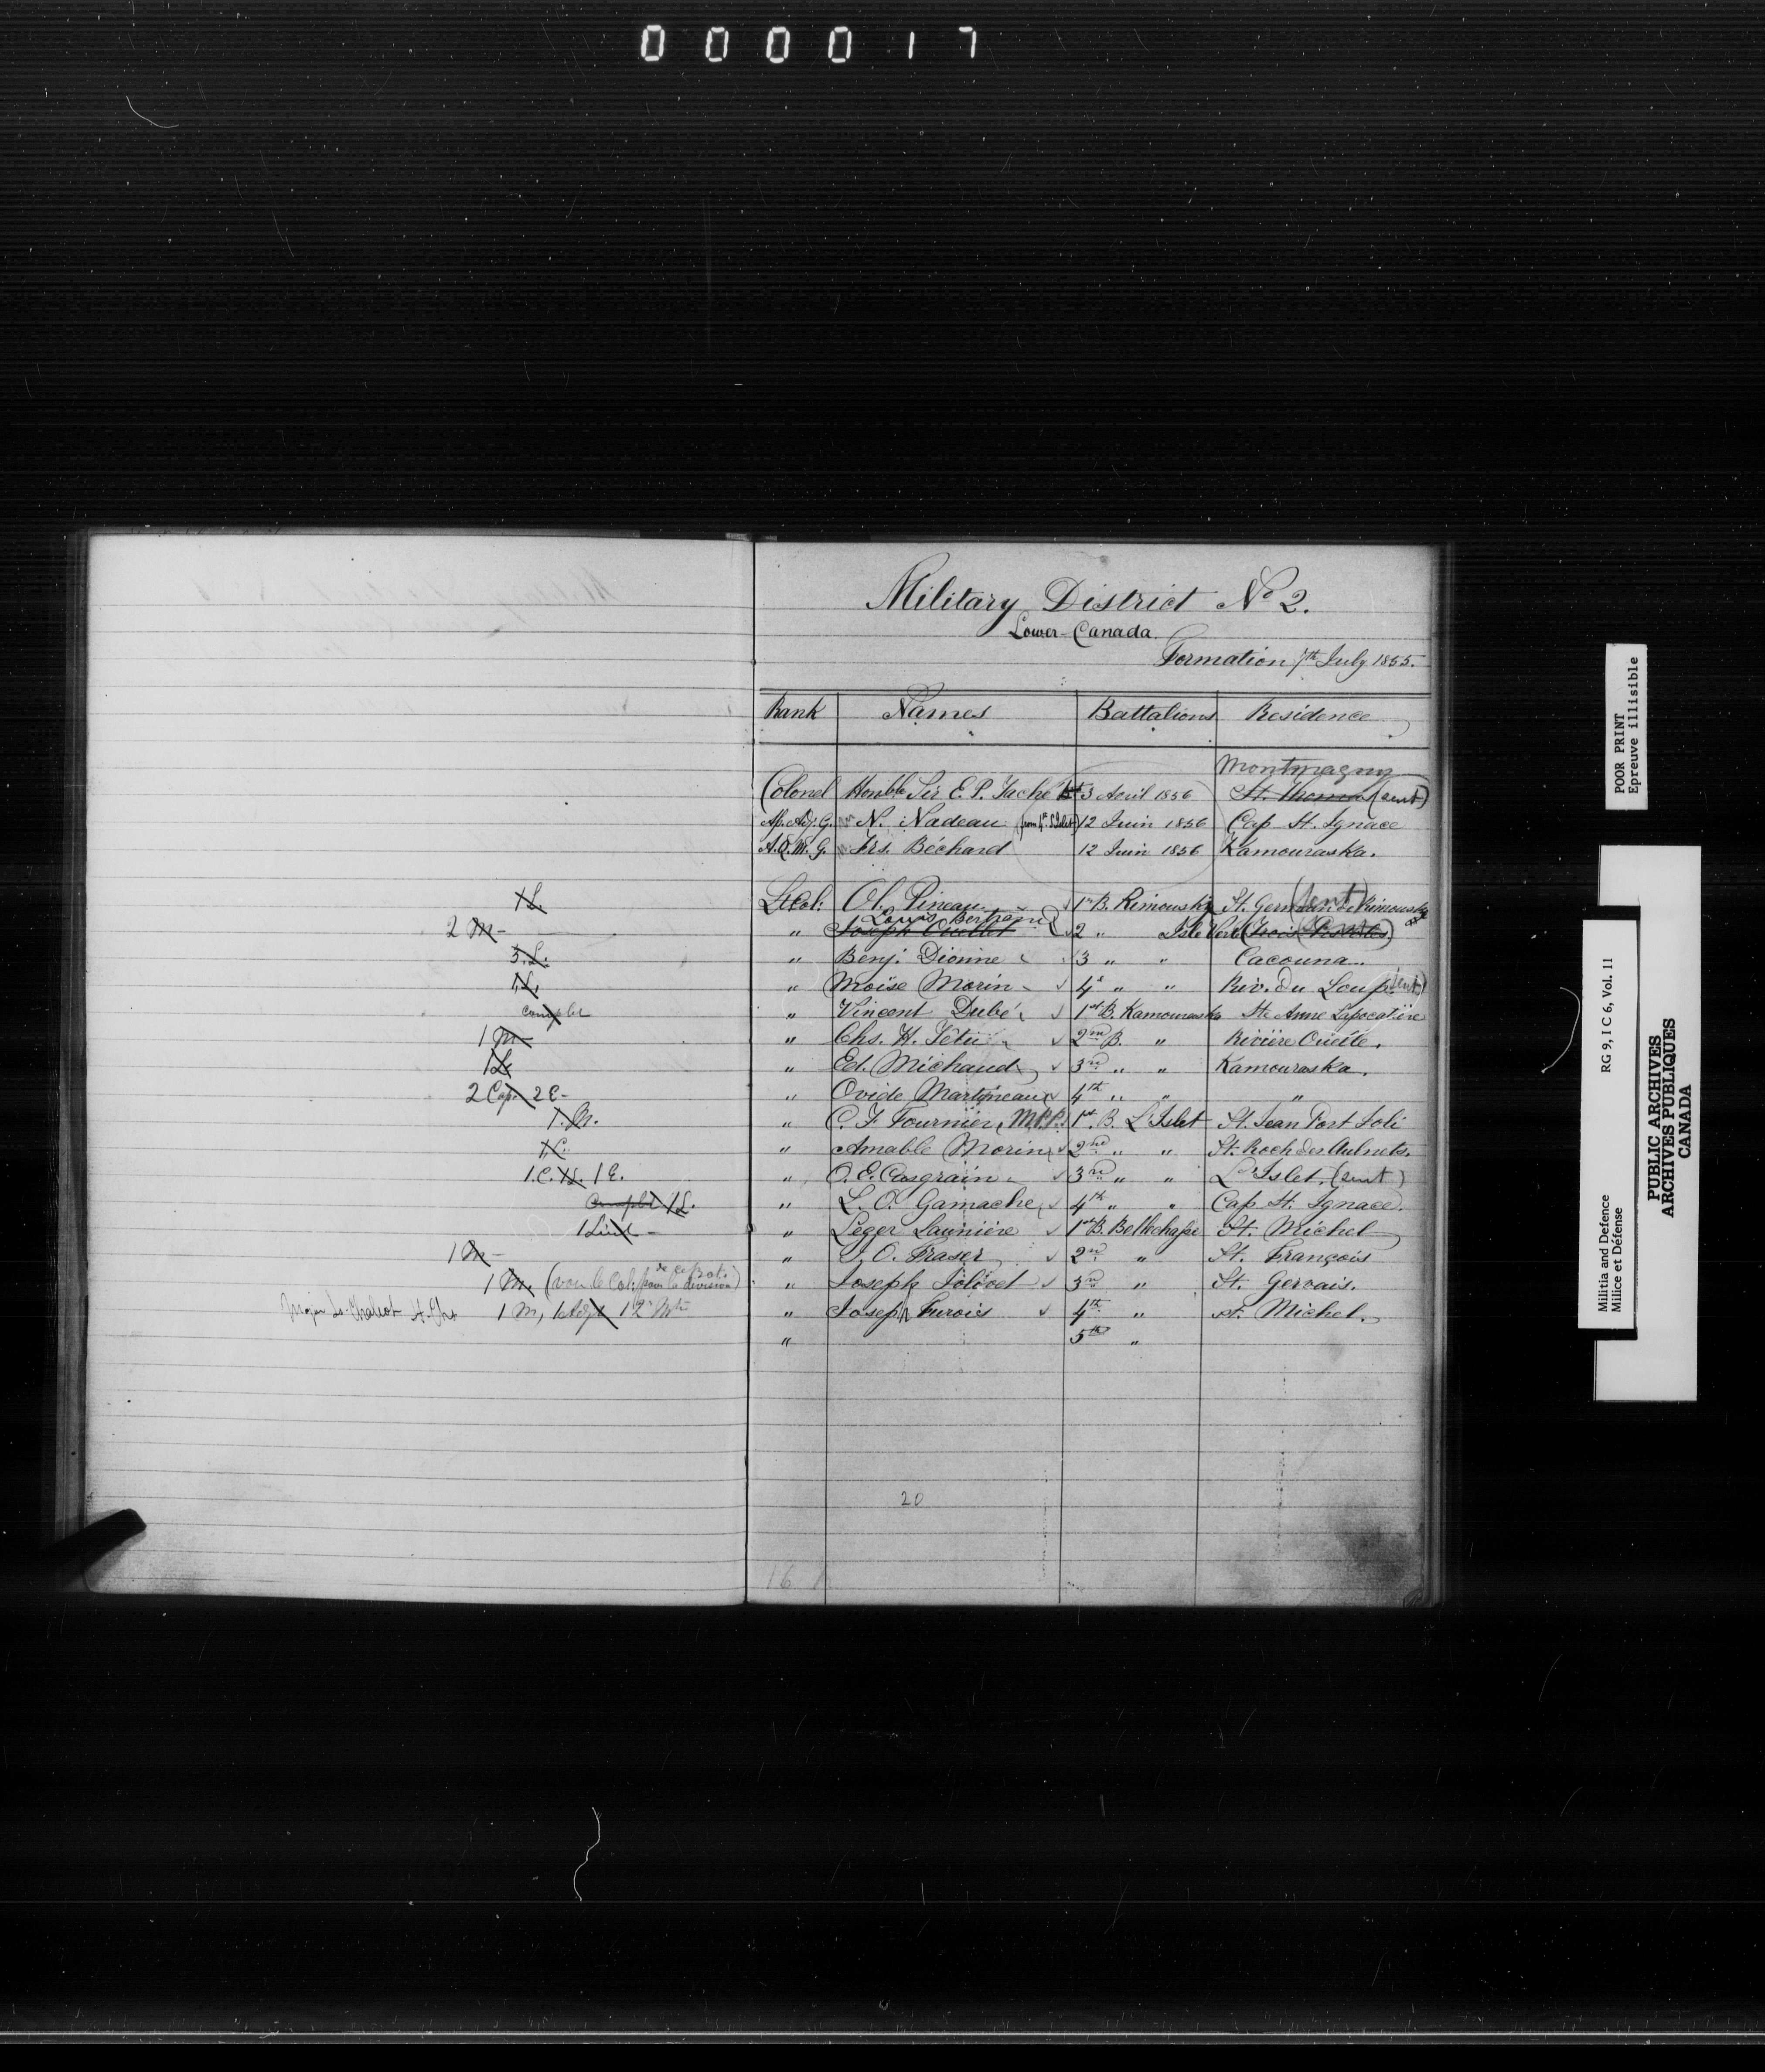 000017
Military District No 2.
Lower-Canada.
Formation 7th July 1855.
Rank Names Battalions Residence
Montmagny
Colonel Honble Sir E. P. Taché 3 Avril 1856 St. Thomas (sent)
N. Nadeau (from 4th L'Islet) 12 Juin 1856 Cap St. Ignace
A.Q.M.G. Frs. Béchard 12 Juin 1856 Kamouraska.
1 L. Lt Col: Ol. Pineau 1st B. Rimousky St. Germain de Rimousky (sent)
Louis Bertrand
2 M - " Joseph Ouellet 2 " Isle Verte (Trois Pistoles)
3. L. " Benj. Dionne 3 " " Cacouna
1 L. " Moïse Morin 4 " " Riv. du Loup (sent)
complet " Vincent Dubé 1st B. Kamouraska Ste Anne Lapocatière
1 M " Chs. H. Têtu 2nd B. " Rivière Ouelle.
1 L " Ed. Michaud 3rd " " Kamouraska.
2 Cap. 2 E - " Ovide Martineau 4th " " "
1. M. " C. F. Fournier, M.P.P. 1st. B. L'Islet St. Jean Port Joli
1 C. " Amable Morin 2nd " " St. Roch des Aulnets.
1. C. 1 L. 1 E. " O. E. Casgrain 3rd " " L'Islet. (sent)
complet 1 L. " L. O. Gamache 4th " " Cap St. Ignace.
1 Lieut - " Leger Launière 1st B. Bellechasse St. Michel
1 M - " O. Fraser 2nd " St. François
1 M. (voir le Col: pour la division) " Joseph 3rd " St. Gervais.
Major 1 M, 1 Adjt " Joseph Turois 4th " St. Michel.
" 5th "
20
16
POOR PRINT
Epreuve illisible
RG 9, I C 6, Vol. 11
Militia and Defence
Milice et Défense
PUBLIC ARCHIVES
ARCHIVES PUBLIQUES
CANADA